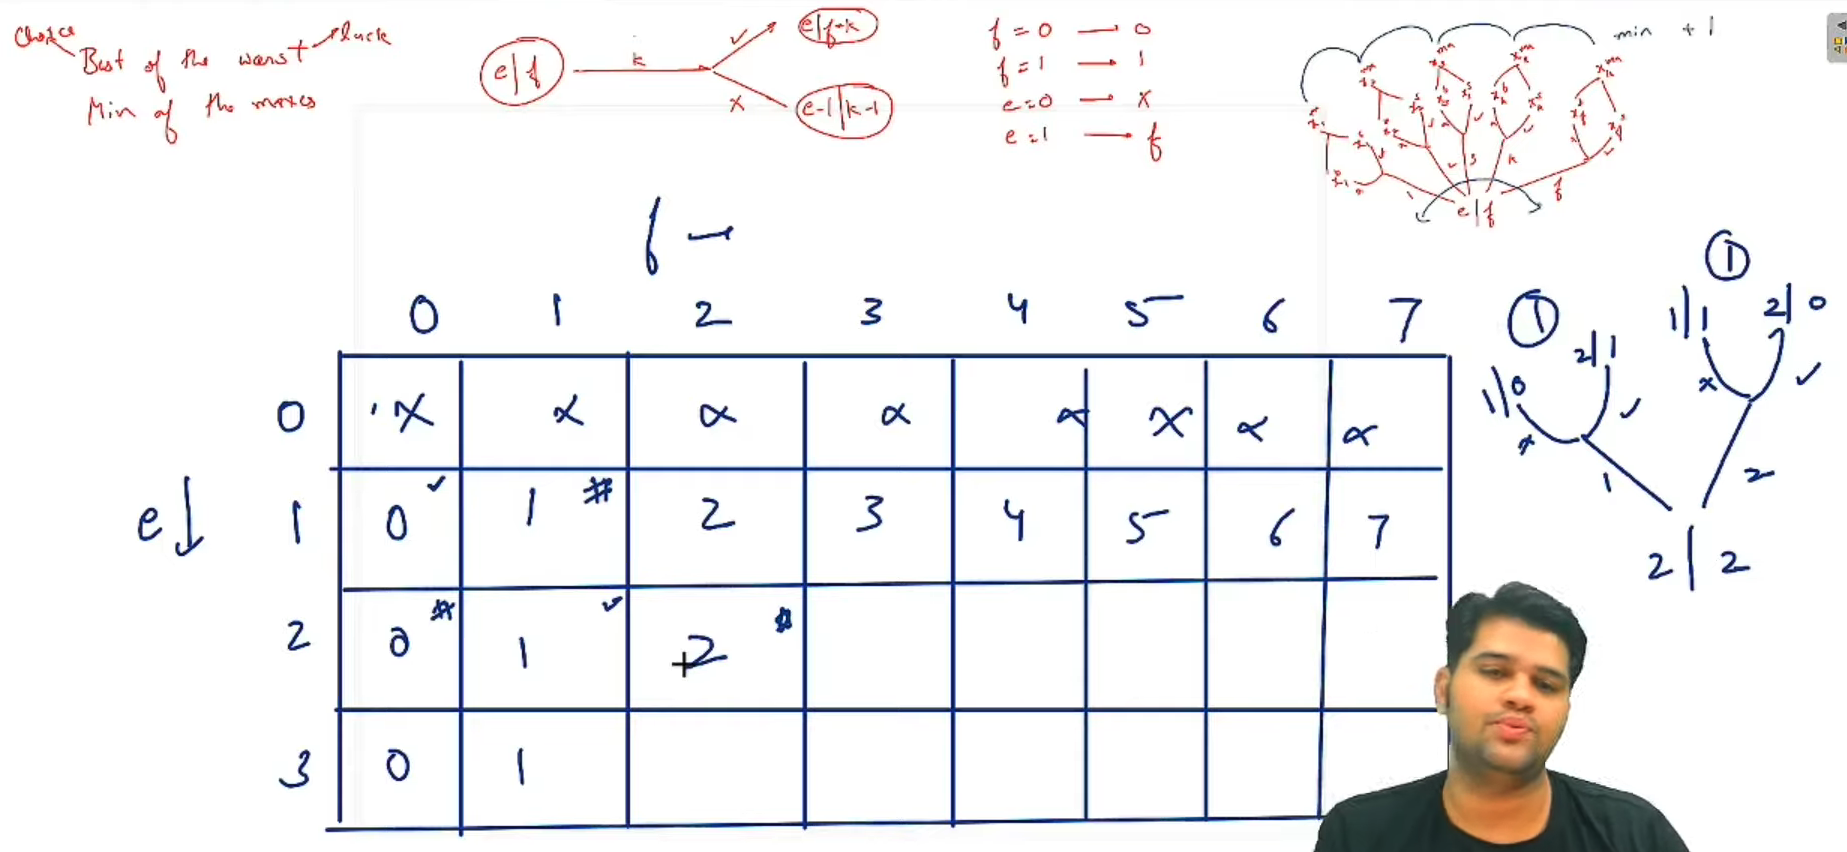 Choice
Best of the worst → luck
Min of the maxes
e|f
k
✓
e|f-k
x
e-1|k-1
f = 0 → 0
f = 1 → 1
e = 0 → x
e = 1 → f
min + 1
e|f
f →
0 1 2 3 4 5 6 7
0 x x x x x x x x
e↓
1 0 ✓ 1 # 2 3 4 5 6 7
2 0 # 1 ✓ 2 #
3 0 1
1
1|0 2|1
x ✓
1
1
1|1 2|0
x ✓
2
2|2